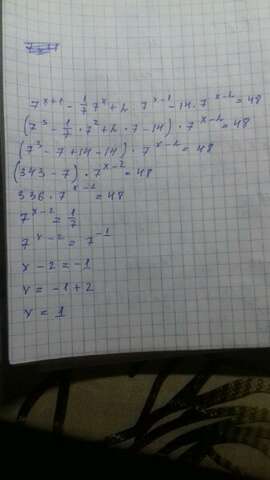 7^{x+1} - \frac{1}{7} 7^x + 2 · 7^{x-1} - 14 · 7^{x-2} = 48
(7^3 - \frac{1}{7} · 7^2 + 2 · 7 - 14) · 7^{x-2} = 48
(7^3 - 7 + 14 - 14) · 7^{x-2} = 48
(343 - 7) · 7^{x-2} = 48
336 · 7^{x-2} = 48
7^{x-2} = \frac{1}{7}
7^{x-2} = 7^{-1}
x - 2 = -1
x = -1 + 2
x = 1